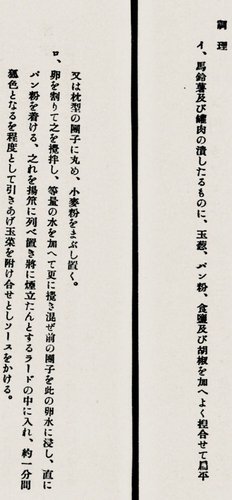 調理
イ、馬鈴薯及び罐肉の潰したるものに、玉葱、パン粉、食鹽及び胡椒を加へよく捏合せて扁平
又は枕型の團子に丸め、小麥粉をまぶし置く。
ロ、卵を割りて之を攪拌し、等量の水を加へて更に攪き混ぜ前の團子を此の卵水に浸し、直に
パン粉を着ける、之れを揚笊に列べ置き將に煙立たんとするラードの中に入れ、約一分間
狐色となるを程度として引きあげ玉菜を附け合せとしソースをかける。